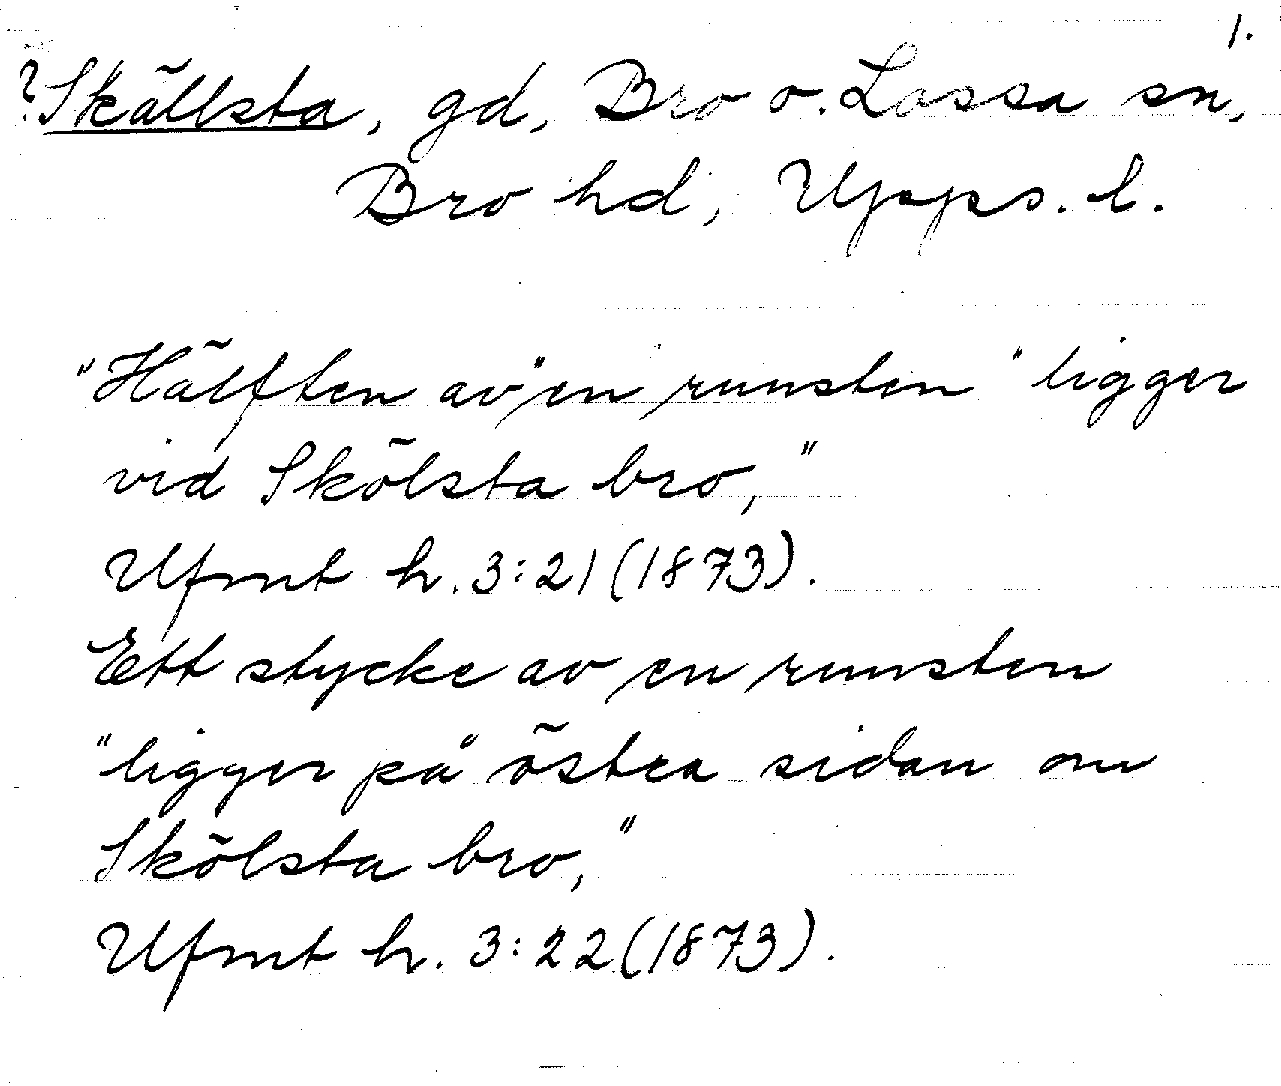 1.
? Skällsta, gd, Bro o. Lossa sn,
Bro hd, Upps. l.
"Hälften av" en runsten "ligger
vid Skölsta bro,"
Ufmt h. 3:21 (1873).
Ett stycke av en runsten
"ligger på östra sidan om
Skölsta bro,"
Ufmt h. 3:22 (1873).